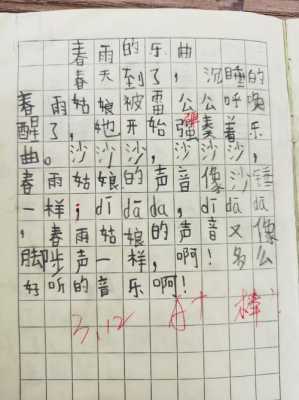 春雨的乐曲
春天到了，沉睡的
春雨姑娘被雷公公呼唤
醒了，她开始弹奏着乐
曲。沙沙沙，沙沙沙，
春雨姑娘的声音像沙锤
一样；dī dā da，dī dā dā
，春雨姑娘的声音又像
脚步声一样，啊！多么
好听的音乐啊！
3.12 A+ 棒！